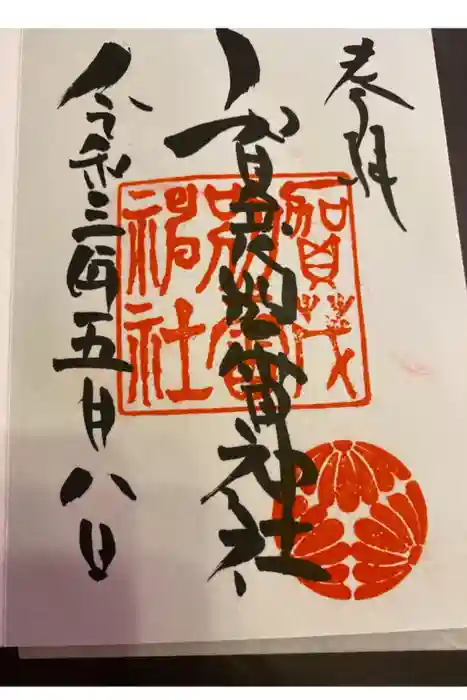 奉拝
賀茂別雷神社
令和三年五月八日
賀茂
別雷
神社